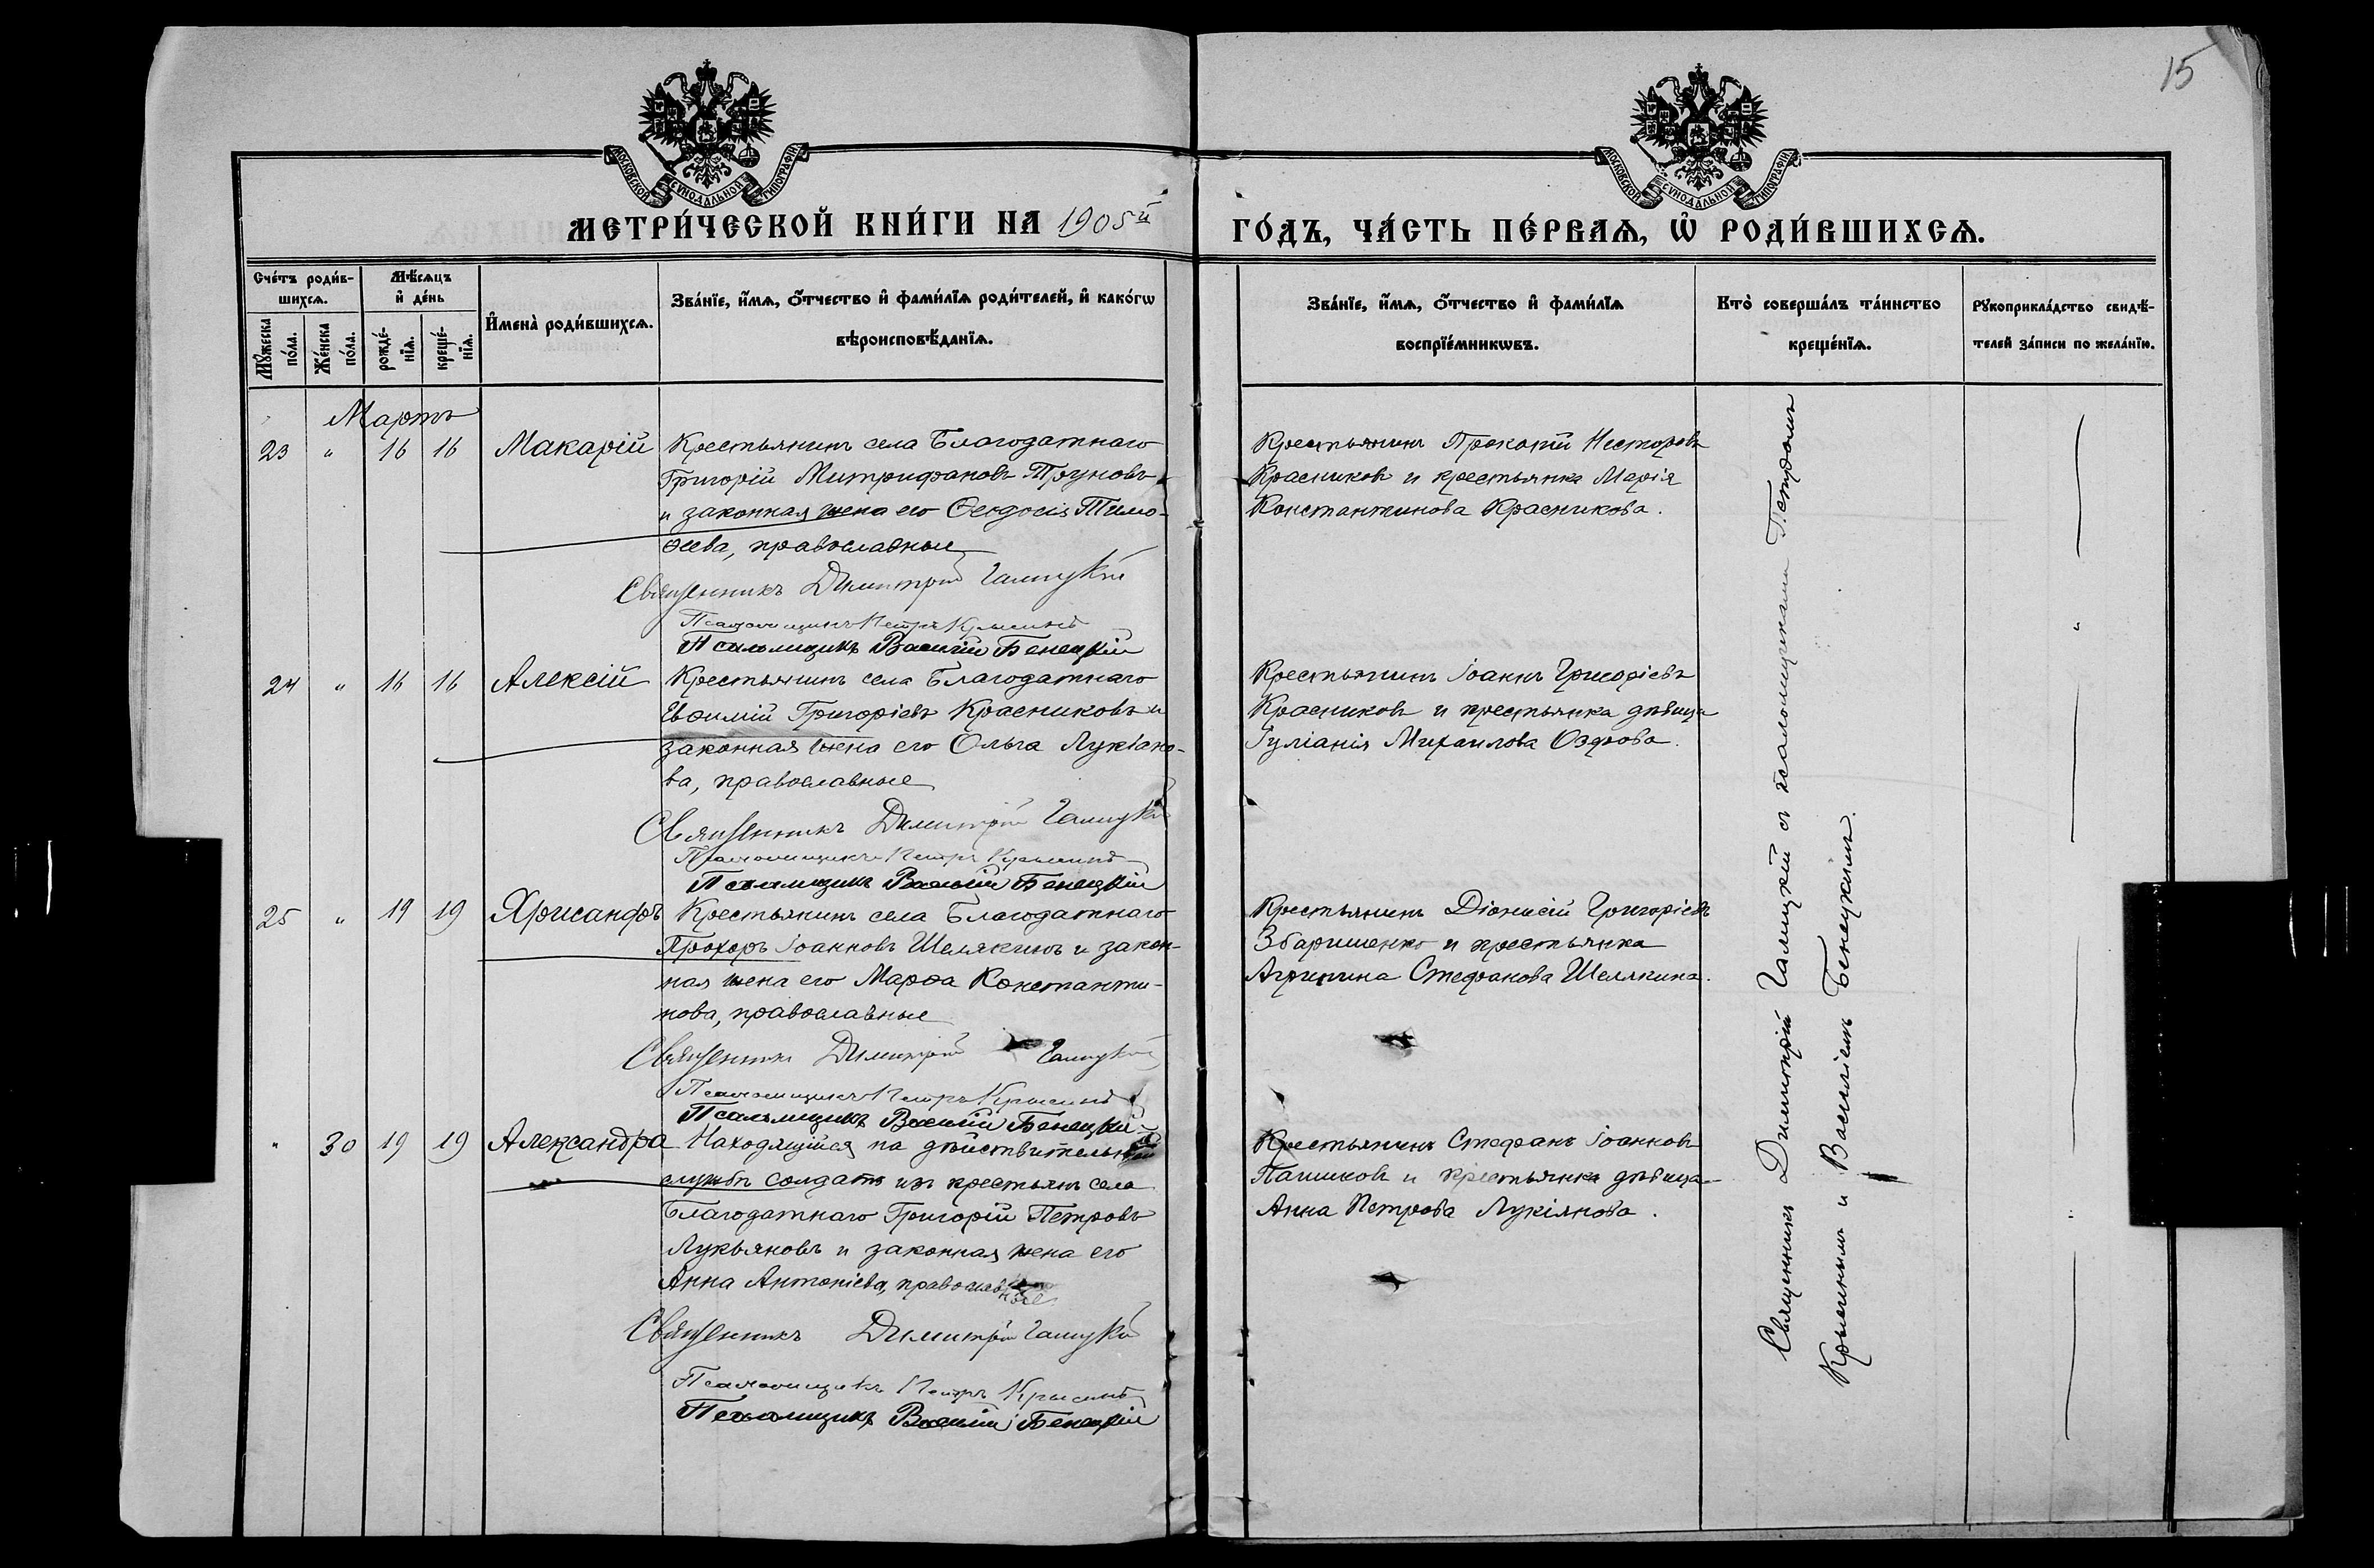 15
МОСКОВСКОЙ СѴНОДАЛЬНОЙ ТИПОГРАФІИ
МОСКОВСКОЙ СѴНОДАЛЬНОЙ ТИПОГРАФІИ
МЕТРИ́ЧЕСКОЙ КНИ́ГИ НА 1905й ГО́ДЪ, ЧА́СТЬ ПЕ́РВАѦ, Ѡ҆ РОДИ́ВШИХСѦ.
Сче́тъ роди́в-
шихсѧ.
Мꙋ́жеска по́ла.
Же́нска по́ла.
Мѣ́сѧцъ
и҆ де́нь
рожде́-
нїѧ.
креще́-
нїѧ.
И҆мена̀ роди́вшихсѧ.
Зва́нїе, и҆́мѧ, ѻ҆́тчество и҆ фами́лїѧ роди́телей, и҆ како́гѡ
вѣроисповѣ́данїѧ.
Зва́нїе, и҆́мѧ, ѻ҆́тчество и҆ фами́лїѧ
воспрїе́мникѡвъ.
Кто̀ соверша́лъ та́инство
креще́нїѧ.
Рꙋкоприкла́дство свидѣ́-
телей за́писи по жела́нїю.
Мартъ
23 " 16 16 Макарій
Крестьянинъ села Благодатнаго
Григорій Митрифановъ Труновъ
и законная жена его Ѳеодосія Тимо-
ѳеева, православные
Священникъ Димитрій Галицкій
Псаломщикъ Петръ Крысинъ
Псаломщикъ Василій Бенецкій
Крестьянинъ Прокопій Несторовъ
Красниковъ и крестьянка Марія
Константинова Красникова.
24 " 16 16 Алексій
Крестьянинъ села Благодатнаго
Евѳимій Григоріевъ Красниковъ и
законная жена его Ольга Лукіано-
ва, православные
Священникъ Димитрій Галицкій
Псаломщикъ Петръ Крысинъ
Псаломщикъ Василій Бенецкій
Крестьянинъ Іоаннъ Григоріевъ
Красниковъ и крестьянка дѣвица
Іуліанія Михаилова
25 " 19 19 Хрисанфъ
Крестьянинъ села Благодатнаго
Прохоръ Іоанновъ Шелякинъ и закон-
ная жена его Марѳа Константи-
нова, православные
Священникъ Димитрій Галицкій
Псаломщикъ Петръ Крысинъ
Псаломщикъ Василій Бенецкій
Крестьянинъ Діонисій Григоріевъ
Збаришенко и крестьянка
Агрипина Стефанова Шелякина.
" 30 19 19 Александра
Находящійся на дѣйствительной
службѣ солдатъ изъ крестьянъ села
Благодатнаго Григорій Петровъ
Лукьяновъ и законная жена его
Анна Антоніева, православные
Священникъ Димитрій Галицкій
Псаломщикъ Петръ Крысинъ
Псаломщикъ Василій Бенецкій
Крестьянинъ Стефанъ Іоанновъ
Пашковъ и крестьянка дѣвица
Анна Петрова Лукіянова.
Священникъ Димитрій Галицкій съ псаломщиками Петромъ
Крысинымъ и Василіемъ Бенецкимъ.